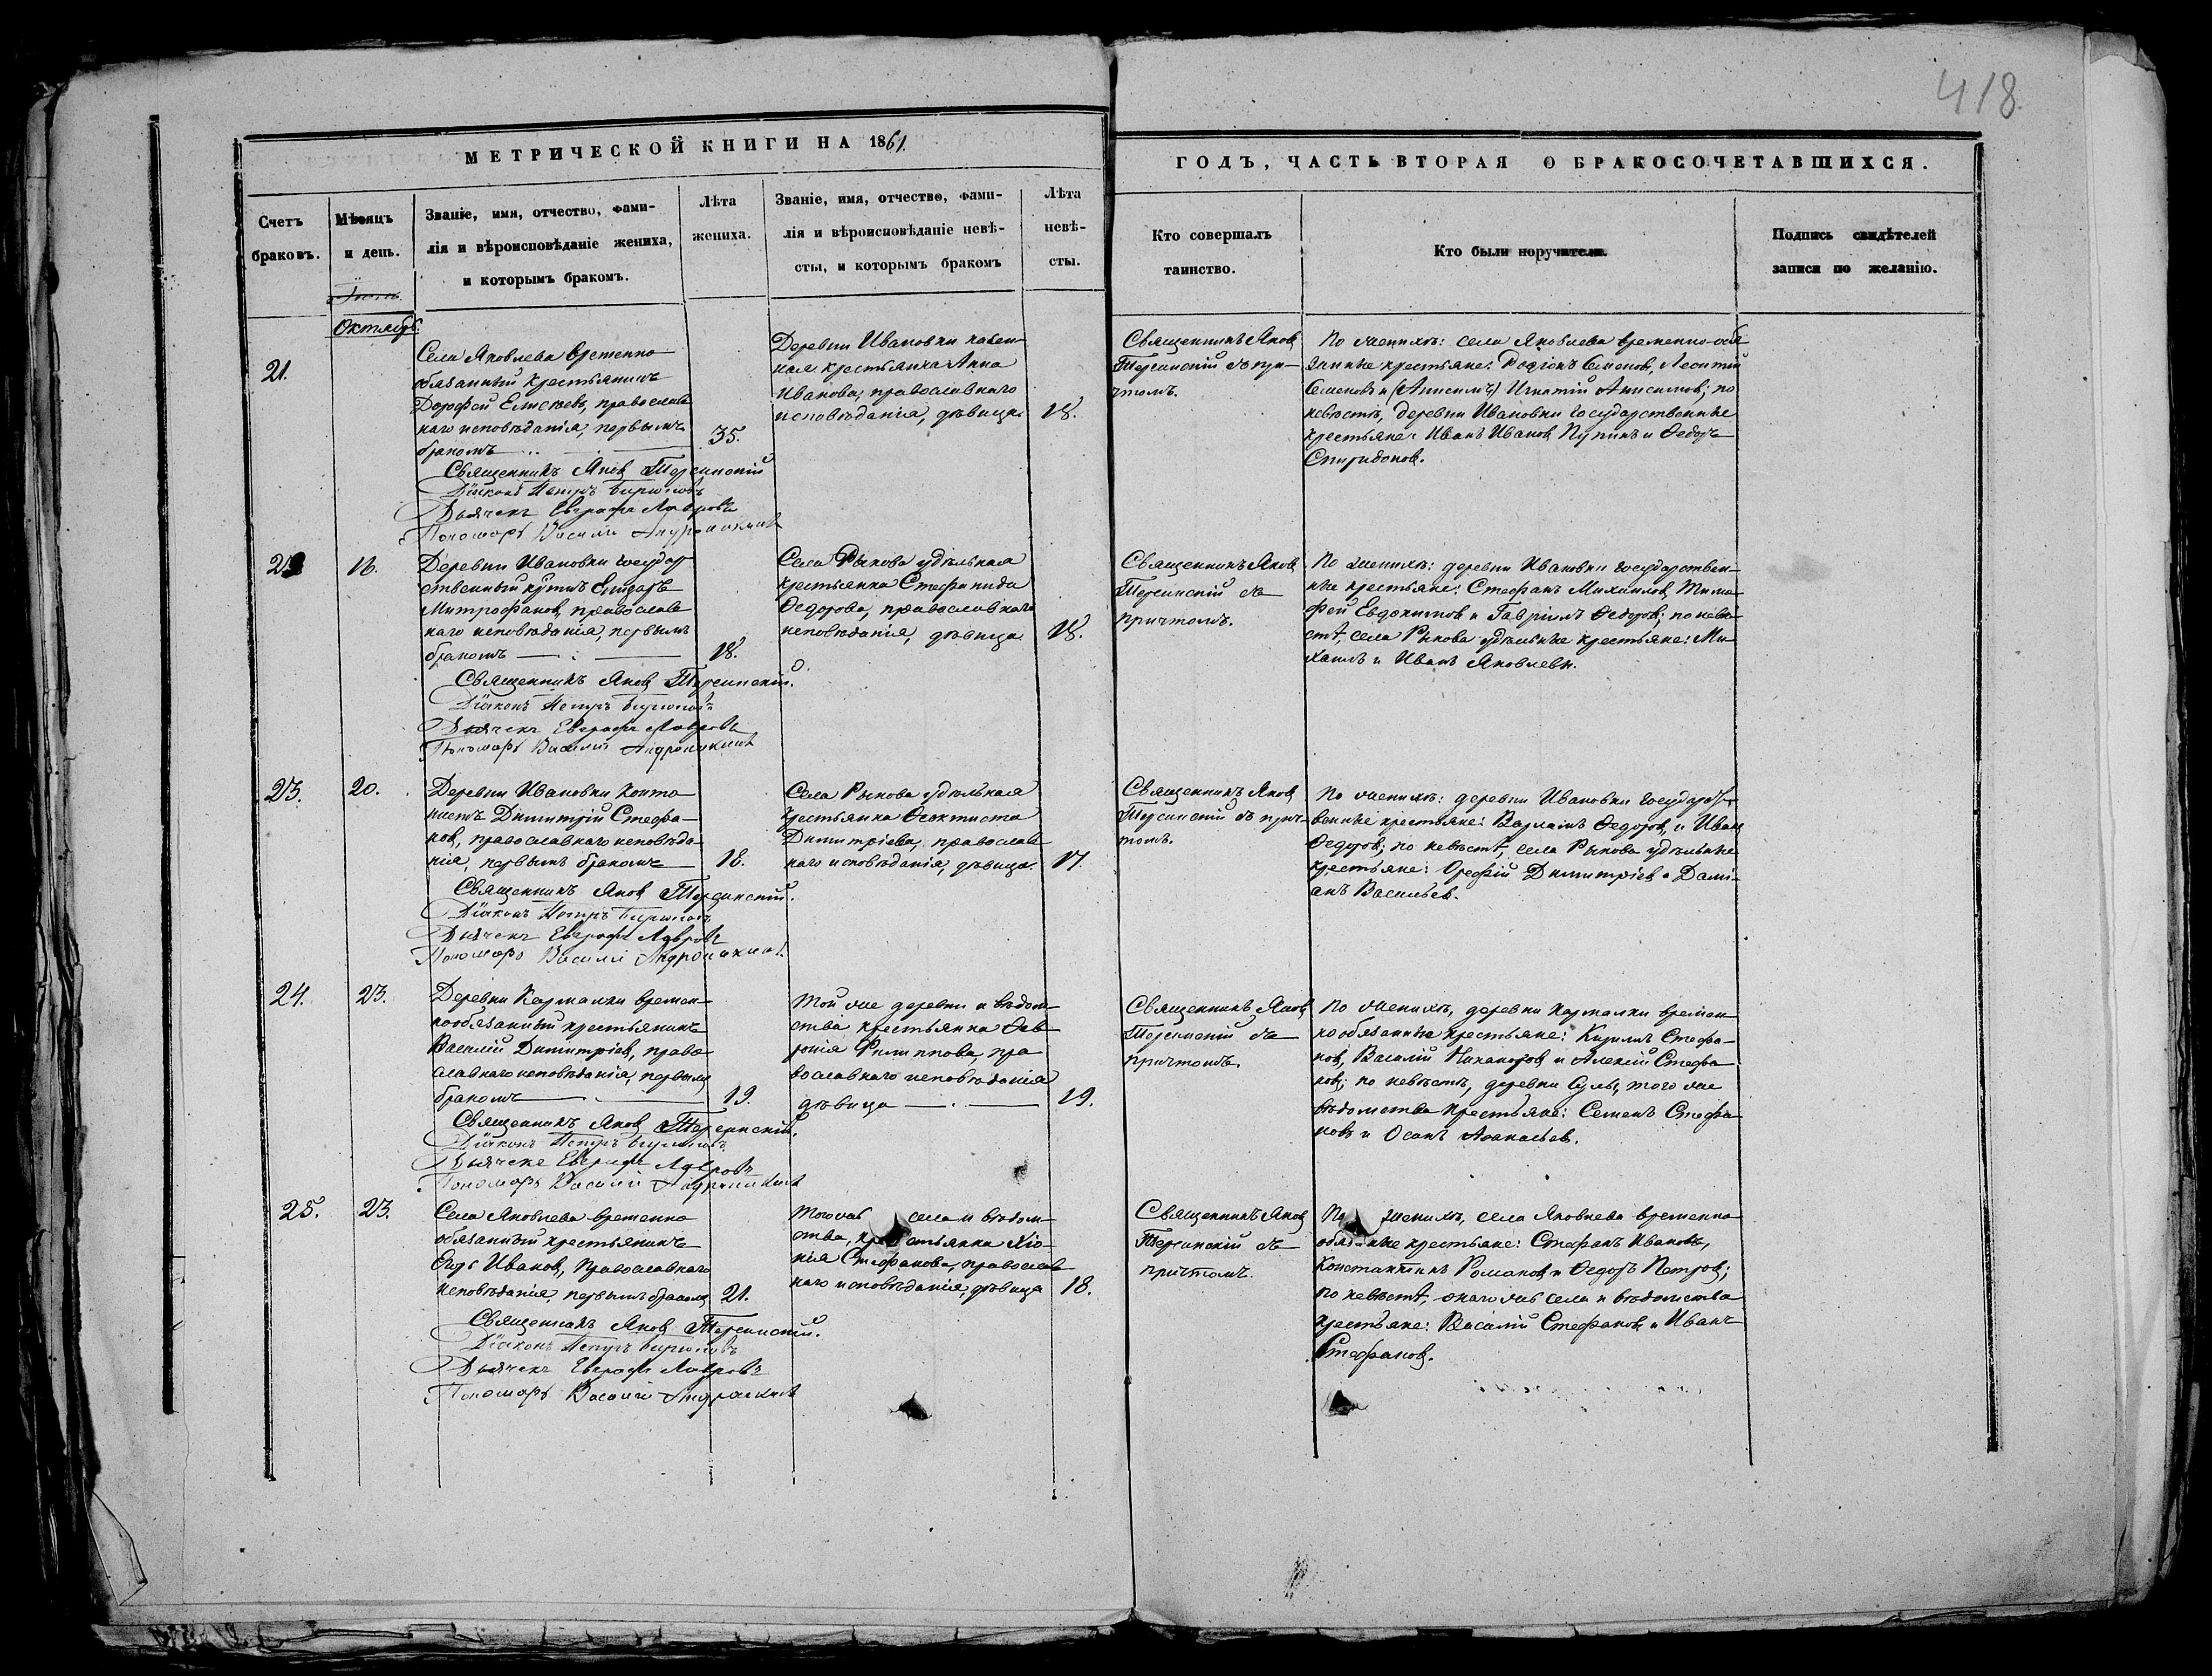 418
МЕТРИЧЕСКОЙ КНИГИ НА 1861
ГОДЪ, ЧАСТЬ ВТОРАЯ О БРАКОСОЧЕТАВШИХСЯ.
Счетъ
браковъ.
Мѣсяцъ
и день.
Званіе, имя, отчество, фами-
лія и вѣроисповѣданіе жениха,
и которымъ бракомъ.
Лѣта
жениха.
Званіе, имя, отчество, фами-
лія и вѣроисповѣданіе невѣ-
сты, и которымъ бракомъ
Лѣта
невѣ-
сты.
Кто совершалъ
таинство.
Кто были поручители.
Подпись свидѣтелей
записи по желанію.
Октябрь
21.
Села Яковлева временно
обязанный крестьянинъ
Дорофей Елисѣевъ, православ
наго исповѣданія, первымъ
бракомъ
35.
Священникъ Яковъ Терсинскій
Діаконъ Петръ
Дьячекъ Евграфъ Лавровъ
Пономарь Василій
Деревни Ивановки казен
ная крестьянка Анна
Иванова, православнаго
исповѣданія, дѣвица
18.
Священникъ Яковъ
Терсинскій съ при-
чтомъ.
По женихѣ: села Яковлева временно-обя
занные крестьяне: Родіонъ Семенов, Леонтій
Семеновъ и (Анисимъ) Игнатій Анисимов; по
невѣстѣ, деревни Ивановки государственные
крестьяне: Иванъ Иванов Пупинъ и Ѳедоръ
Спиридонов.
22
16.
Деревни Ивановки государ
ственный Елизаръ
Митрофанов, православ
наго исповѣданія, первымъ
бракомъ
18.
Священникъ Яковъ Терсинскій.
Діаконъ Петръ
Дьячекъ Евграфъ Лавровъ
Пономарь Василій Андроникинъ
Села Рыкова удѣльная
крестьянка Стефанида
Ѳедорова, православнаго
исповѣданія, дѣвица
18.
Священникъ Яковъ
Терсинскій съ
причтомъ.
По женихѣ: деревни Ивановки государствен-
ные крестьяне: Стефанъ Михаилов, Тимо
фей Евдокимов и Гавріилъ Ѳедоров; по невѣ
стѣ, села Рыкова удѣльные крестьяне: Ми
хаилъ и Иванъ Яковлевы.
23.
20.
Деревни Ивановки Канто
нистъ Димитрій Стефа-
нов, православнаго исповѣда
нія, первымъ бракомъ
18.
Священникъ Яковъ Терсинскій.
Діаконъ Петръ
Дьячекъ Евграфъ Лавровъ
Пономарь Василій Андроникинъ
Села Рыкова удѣльная
крестьянка Ѳеоктиста
Димитріева, православ
наго исповѣданія, дѣвица.
17.
Священникъ Яковъ
Терсинскій съ прич-
томъ.
По женихѣ: деревни Ивановки государст
венные крестьяне: Варлаамъ Ѳедоров, и Иванъ
Ѳедоров; по невѣстѣ, села Рыкова удѣльные
крестьяне: Орефій Димитріев и Дамі-
анъ Васильев.
24.
23.
Деревни Кармалки времен-
нообязанный крестьянинъ
Василій Димитріев, право
славнаго исповѣданія, первымъ
бракомъ
19.
Священникъ Яковъ Терсинскій.
Діаконъ Петръ
Дьячекъ Евграфъ Лавровъ
Пономарь Василій Андроникинъ
Той же деревни и вѣдом
ства крестьянка Ѳев
ронія Филиппова, пра
вославнаго исповѣданія
дѣвица
19.
Священникъ Яковъ
Терсинскій съ
причтомъ.
По женихѣ, деревни Кармалки времен
нообязанные крестьяне: Кирилъ Стефа-
нов, Василій Никаноров и Алексій Стефа
нов; по невѣстѣ, деревни Сулы, того же
вѣдомства крестьяне: Семенъ Стефа
новъ и Осипъ Аѳанасьев.
25.
23.
Села Яковлева временно
обязанный крестьянинъ
Егоръ Иванов, Православнаго
исповѣданія, первымъ бракомъ
21.
Священникъ Яковъ Терсинскій.
Діаконъ Петръ
Дьячекъ Евграфъ Лавровъ
Пономарь Василій Андроникинъ
Того же села и вѣдом-
ства, крестьянка Хіо-
нія Стефанова, православ
наго исповѣданія, дѣвица
18.
Священникъ Яковъ
Терсинскій съ
причтомъ.
По женихѣ, села Яковлева временно
обязанные крестьяне: Стефанъ Ивановъ,
Константинъ Романов и Ѳедоръ Петров;
по невѣстѣ, онаго же села и вѣдомства
крестьяне: Василій Стефанов и Иванъ
Стефанов.